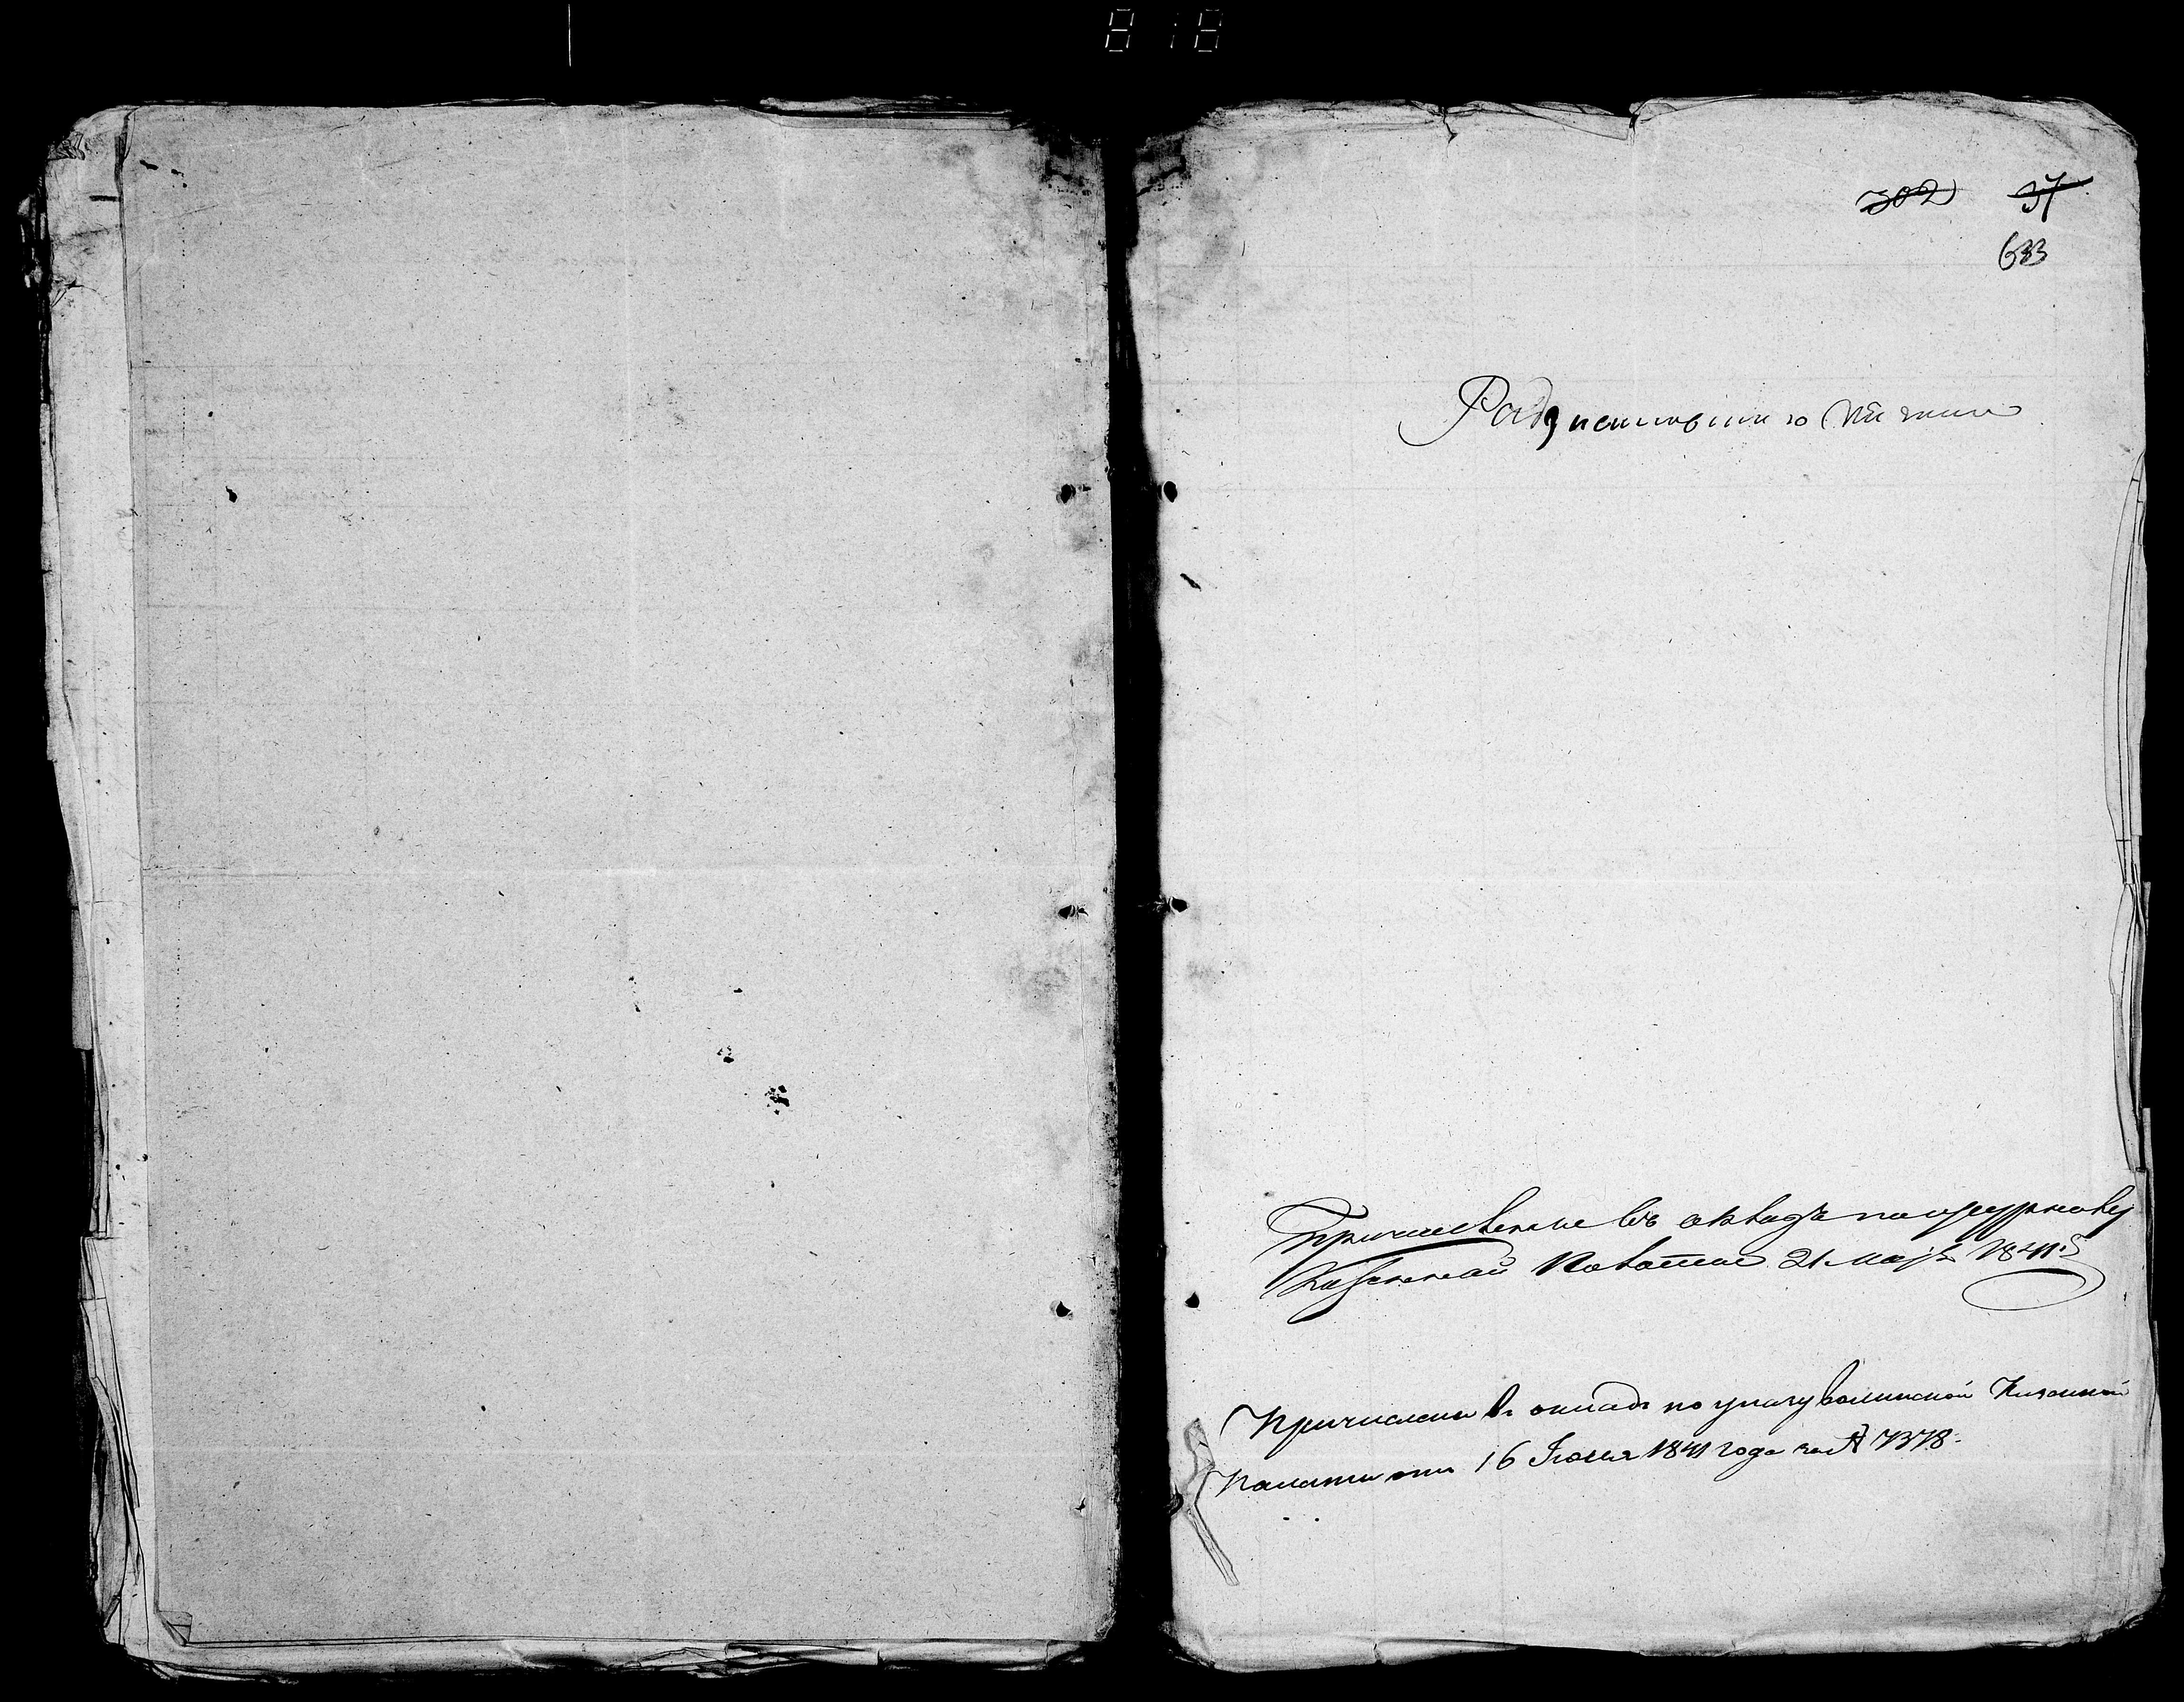 818
302 37
633
Причисленные въ окладъ по журналу
Казенной Палаты 21 Маія 1841 г
Причислены въ окладъ по указу волынской Казенной
Палаты отъ 16 Іюля 1841 года за № 7378.